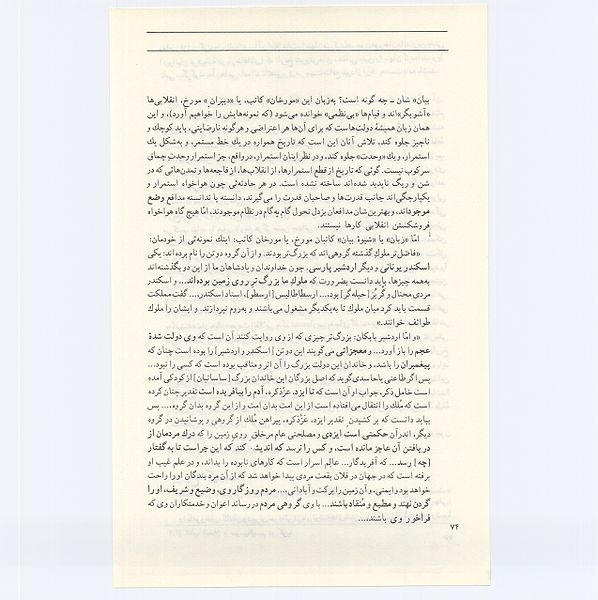 بیان» شان ـ چه گونه است؟ به‌زبان این «مورخان» کاتب، یا «دبیران» مورخ، انقلابی‌ها
«آشوبگر»اند و قیام‌ها «بی‌نظمی» خوانده می‌شود (که نمونه‌هایش را خواهیم آورد)، و این
همان زبان همیشهٔ دولت‌هاست که برای آن‌ها هر اعتراضی و هرگونه نارضایتی، باید کوچک و
ناچیز جلوه کند، تلاش آنان این است که تاریخ همواره در یك خط مستمر، و به‌شکل یك
استمرار، و یك «وحدت» جلوه کند، و در نظر اینان استمرار، درواقع، جز استمرار وحدتِ چماق
سرکوب نیست. گوئی که تاریخ از قطع استمرارها، از انقلاب‌ها، از فاجعه‌ها و تمدن‌هائی که در
شن و ریگ ناپدید شده‌اند ساخته نشده است. در هر حادثه‌ئی چون هواخواه استمرار و
یکپارچگی‌اند جانب قدرت‌ها و صاحبان قدرت را می‌گیرند، دانسته یا ندانسته مدافع وضع
موجوداند، و بهترین‌شان مدافعان بزدل تحول گام به‌گام در نظام موجودند، امّا هیچ گاه هواخواه
فروشکستن انقلابی کارها نیستند.
امّا «زبان» یا «شیوهٔ بیان» کاتبان مورخ، یا مورخان کاتب: اینك نمونه‌ئی از خودمان:
«فاضل‌تر ملوكِ گذشته گروهی‌اند که بزرگ‌تر بودند. و از آن گروه دو تن را نام برده‌اند: یکی
اسکندر یونانی و دیگر اردشیر پارسی. چون خداوندان و پادشاهان ما از این دو بگذشته‌اند
به‌همه چیزها، باید دانست بضرورت که ملوكِ ما بزرگ‌تر روی زمین بوده‌اند... و اسکندر
مردی محتال و گُربُز [حیله‌گر] بود،... ارسطاطالیس [ارسطو]، استاد اسکندر،... گفت مملکت
قسمت باید کرد میان ملوك تا به‌یکدیگر مشغول می‌باشند و به‌روم نپردازند. و ایشان را ملوك
طوائف خوانند.»
«و امّا اردشیر بابکان: بزرگ‌تر چیزی که از وی روایت کنند آن است که وی دولت شدهٔ
عجم را باز آورد... و معجزاتی می‌گویند این دو تن [اسکندر و اردشیر] را بوده است چنان که
پیغمبران را باشد، و خاندان این دولت بزرگ را آن اثر و مناقب بوده است که کسی را نبود...
پس اگر طاعنی یا حاسدی گوید که اصل بزرگان این خاندان بزرگ [ساسانیان] از کودکی آمده
است خامل ذکر، جواب او آن است که تا ایزد، عزّذکره، آدم را بیافریده است تقدیر چنان کرده
است که مُلك را انتقال می‌افتاده است از این امت بدان امت و از این گروه بدان گروه.... پس
بباید دانست که بر کشیدن تقدیر ایزد، عزّذکره، پیراهن مُلك از گروهی و پوشانیدن در گروه
دیگر، اندرآن حکمتی است ایزدی و مصلحتی عام مرخلق روی زمین را که درك مردمان از
دریافتن آن عاجز مانده است، و کس را نرسد که اندیشه کند که این چراست تا به گفتار
[چه] رسد... که آفریدگار... عالِمِ اسرار است که کارهای نابوده را بداند، و در علم غیب او
برفته است که در جهان در فلان بقعت مردی پیدا خواهد شد که از آن مرد بندگان او را راحت
خواهد بود و ایمنی، و آن زمین را برکت و آبادانی.... مردم روزگار وی، وضیع و شریف، او را
گردن نهند و مطیع و مُنقاد باشند... با وی گروهی مردم در رساند اعوان و خدمتکاران وی که
فراخور وی باشند،...
۷۴